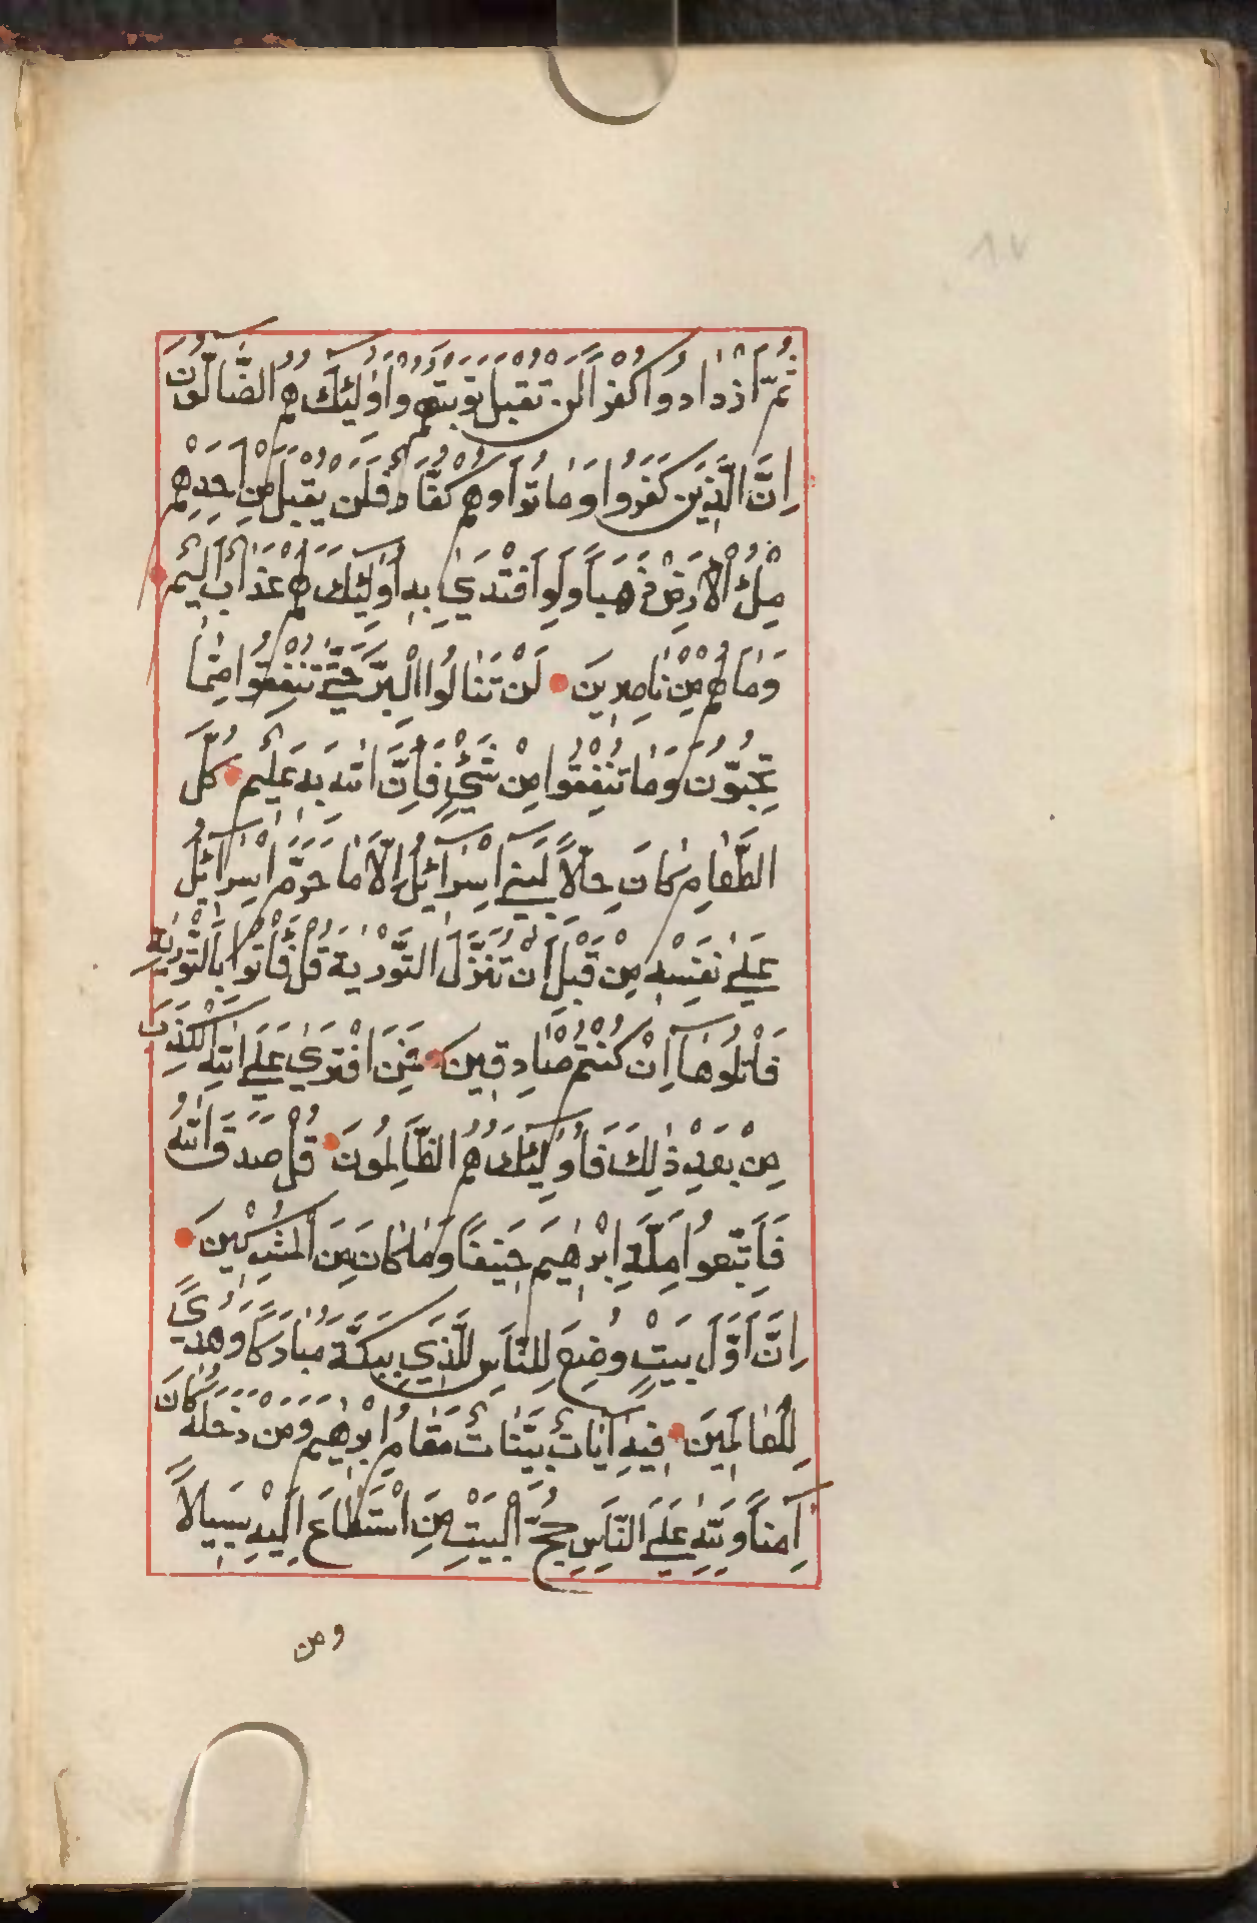 ثُمَّ ازْدَادُوا كُفْرًا لَنْ تُقْبَلَ تَوْبَتُهُمْ وَأُولَٰئِكَ هُمُ الضَّالُّونَ
اِنَّ الَّذِينَ كَفَرُوا وَمَاتُوا وَهُمْ كُفَّارٌ فَلَنْ يُقْبَلَ مِنْ اَحَدِهِمْ
مِلْءُ الْاَرْضِ ذَهَبًا وَلَوِ افْتَدَىٰ بِهِ اُولَٰئِكَ لَهُمْ عَذَابٌ اَلِيمٌ
وَمَا لَهُمْ مِنْ نَاصِرِينَ لَنْ تَنَالُوا الْبِرَّ حَتَّىٰ تُنْفِقُوا مِمَّا
تُحِبُّونَ وَمَا تُنْفِقُوا مِنْ شَيْءٍ فَاِنَّ اللّٰهَ بِهِ عَلِيمٌ كُلُّ
الطَّعَامِ كَانَ حِلًّا لِبَنِي اِسْرَآئِيلَ اِلَّا مَا حَرَّمَ اِسْرَآئِيلُ
عَلَىٰ نَفْسِهِ مِنْ قَبْلِ اَنْ تُنَزَّلَ التَّوْرٰيةُ قُلْ فَأْتُوا بِالتَّوْرٰيةِ
فَاتْلُوهَآ اِنْ كُنْتُمْ صَادِقِينَ فَمَنِ افْتَرٰى عَلَى اللّٰهِ الْكَذِبَ
مِنْ بَعْدِ ذٰلِكَ فَاُولٰئِكَ هُمُ الظَّالِمُونَ قُلْ صَدَقَ اللّٰهُ
فَاتَّبِعُوا مِلَّةَ اِبْرٰهِيمَ حَنِيفًا وَمَا كَانَ مِنَ الْمُشْرِكِينَ
اِنَّ اَوَّلَ بَيْتٍ وُضِعَ لِلنَّاسِ لَلَّذِي بِبَكَّةَ مُبَارَكًا وَهُدًى
لِلْعَالَمِينَ فِيهِ اٰيَاتٌ بَيِّنَاتٌ مَقَامُ اِبْرٰهِيمَ وَمَنْ دَخَلَهُ كَانَ
اٰمِنًا وَلِلّٰهِ عَلَى النَّاسِ حِجُّ الْبَيْتِ مَنِ اسْتَطَاعَ اِلَيْهِ سَبِيلًا
ومن